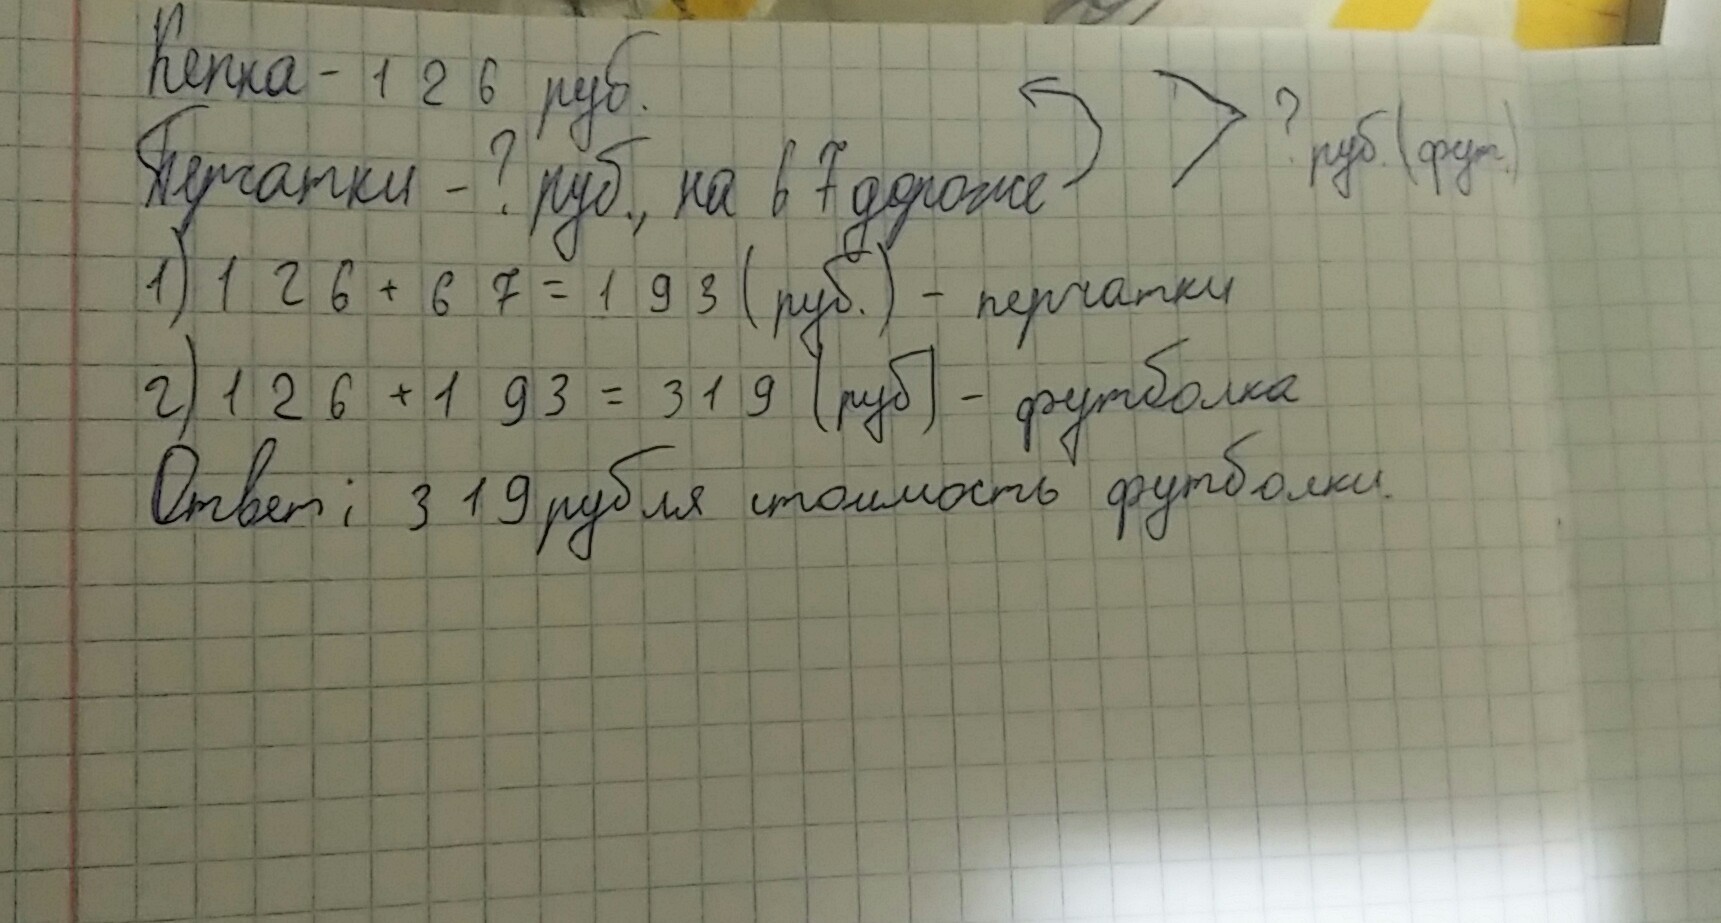 Кепка - 126 руб.
Перчатки - ? руб., на 67 дороже
? руб. (фут.)
1) 126 + 67 = 193 (руб.) - перчатки
2) 126 + 193 = 319 (руб) - футболка
Ответ: 319 рубля стоимость футболки.